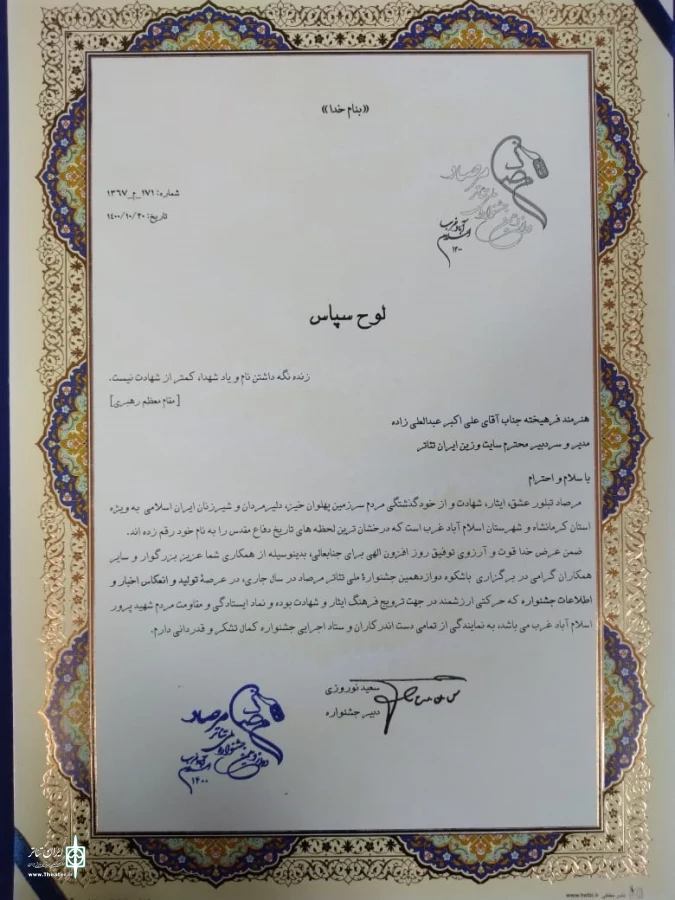 «بنام خدا»
مرصاد
دوازدهمین جشنواره ملی تئاتر
اسلام آباد غرب
۱۴۰۰
شماره: ۲۷۱_م_۱۳۶۷
تاریخ: ۱۴۰۰/۱۰/۲۰
لوح سپاس
زنده نگه داشتن نام و یاد شهدا، کمتر از شهادت نیست.
[مقام معظم رهبری]
هنرمند فرهیخته جناب آقای علی اکبر عبدالعلی زاده
مدیر و سردبیر محترم سایت وزین ایران تئاتر
با سلام و احترام
مرصاد تبلور عشق، ایثار، شهادت و از خودگذشتگی مردم سرزمین پهلوان خیز، دلیرمردان و شیرزنان ایران اسلامی به ویژه
استان کرمانشاه و شهرستان اسلام آباد غرب است که درخشان ترین لحظه های تاریخ دفاع مقدس را به نام خود رقم زده اند.
ضمن عرض خدا قوت و آرزوی توفیق روز افزون الهی برای جنابعالی، بدینوسیله از همکاری شما عزیز بزرگوار و سایر
همکاران گرامی در برگزاری باشکوه دوازدهمین جشنوارۀ ملی تئاتر مرصاد در سال جاری، در عرصۀ تولید و انعکاس اخبار و
اطلاعات جشنواره که حرکتی ارزشمند در جهت ترویج فرهنگ ایثار و شهادت بوده و نماد ایستادگی و مقاومت مردم شهید پرور
اسلام آباد غرب می باشد، به نمایندگی از تمامی دست اندرکاران و ستاد اجرایی جشنواره کمال تشکر و قدردانی دارم.
سعید نوروزی
دبیر جشنواره
مرصاد
دوازدهمین جشنواره ملی تئاتر
اسلام آباد غرب
۱۴۰۰
ایران تئاتر
www.Theater.ir